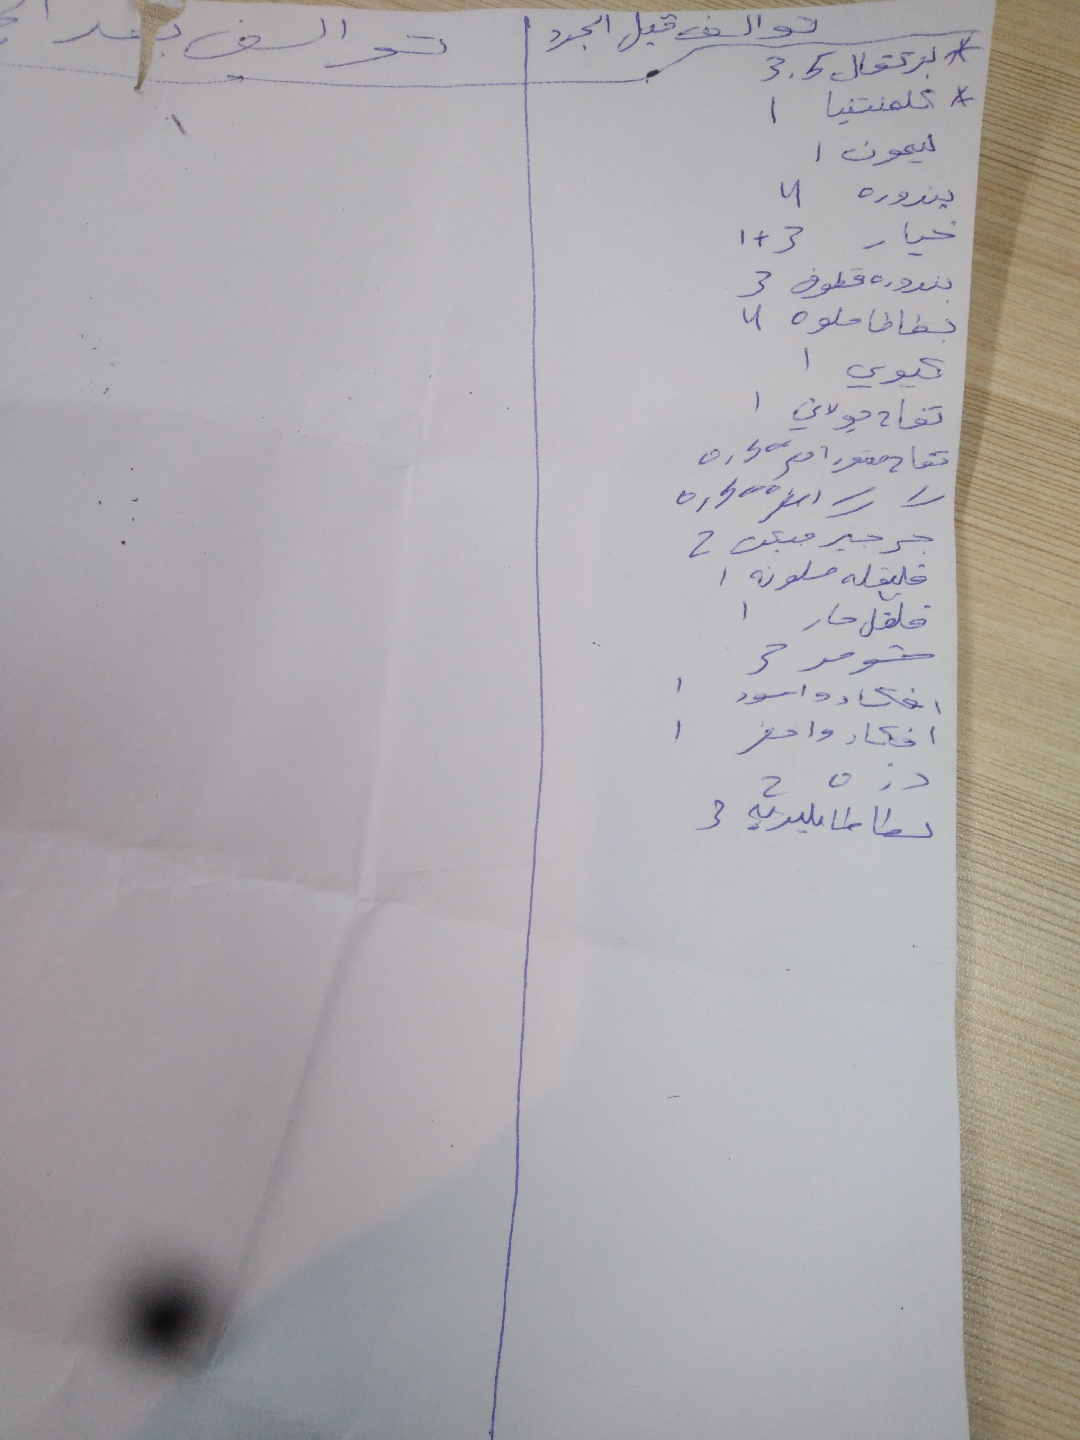 توالف قبل الجرد
توالف بعد
* برتقال 3.5
* كلمنتينا 1
ليمون 1
بندوره 4
خيار 3+1
بندوره قطوف 3
بطاطا حلوه 4
كيوي 1
تفاح جولاني 1
تفاح
جرجير 2
فليفله ملونه 1
فلفل حار 1
شومر 3
افكادو اسود 1
افكادو اصفر 1
ذره 2
بطاطا بلديه 3